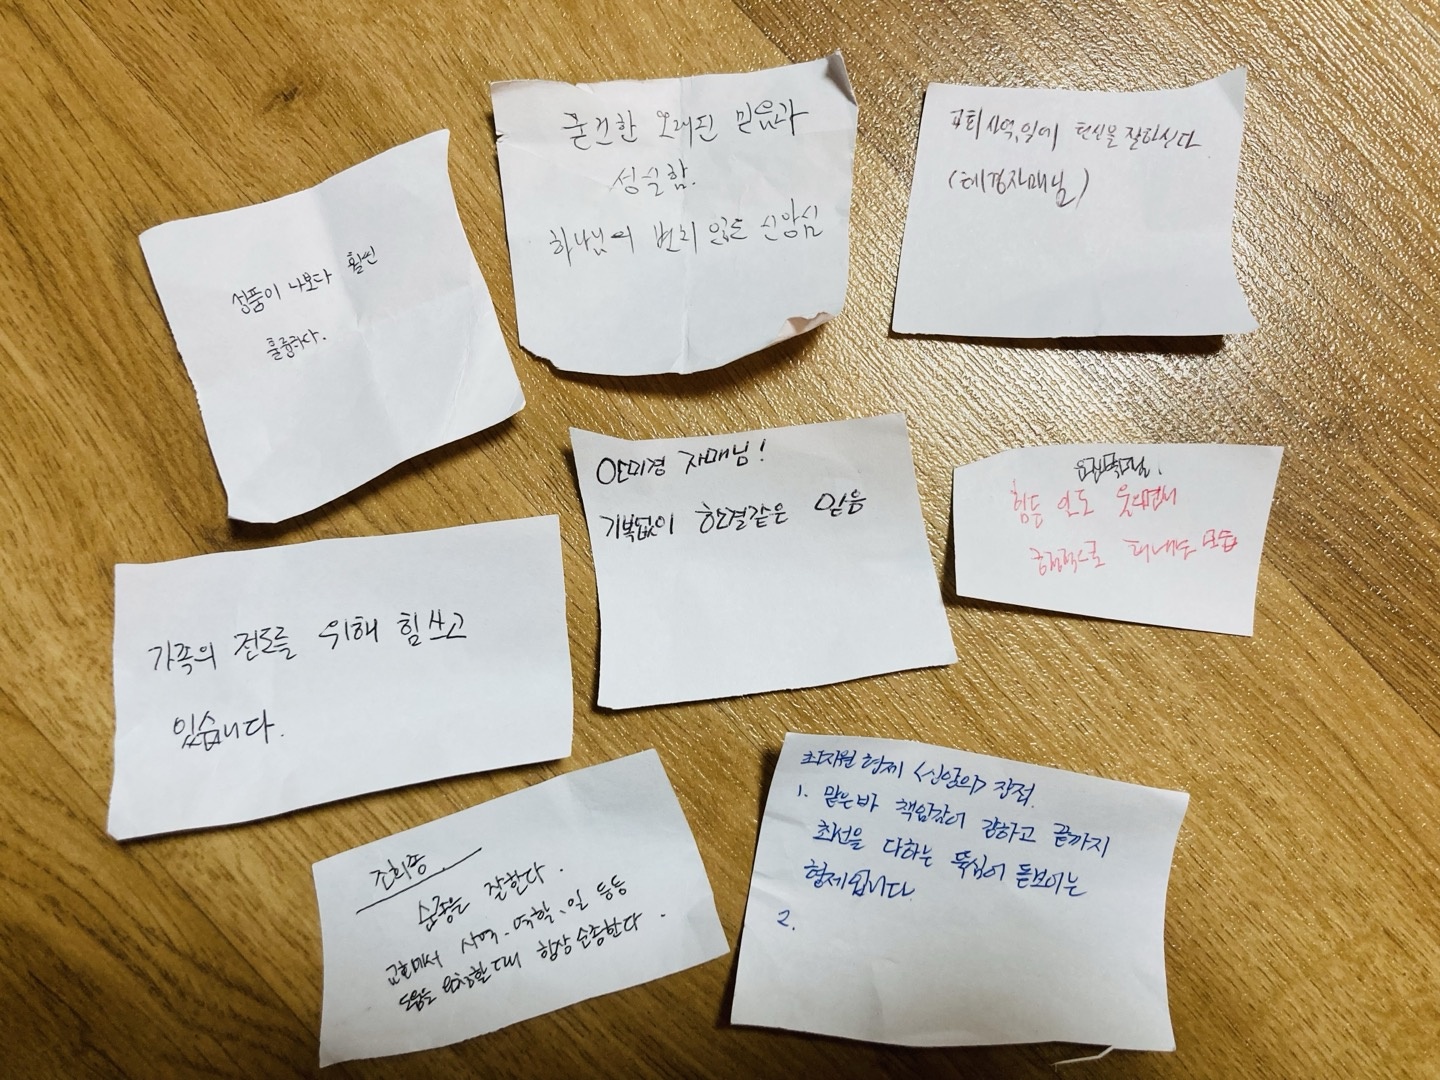 성품이 나보다 훨씬
훌륭하다.
굳건한 오래된 믿음과
성실함.
하나님이 번치 않는 신앙심
교회 사역,일에 헌신을 잘하신다
(혜경자매님)
안미경 자매님!
기복없이 한결같은 믿음
힘든 일도 웃으면서
긍정적으로 해내는 모습
가족의 전도를 위해 힘쓰고
있습니다.
조희종
순종을 잘한다.
교회에서 사역. 역할, 일 등등
도움을 요청할 때 항상 순종한다.
최지원 형제 <신앙의> 장점.
1. 맡은바 책임감이 강하고 끝까지
최선을 다하는 뚝심이 돋보이는
형제입니다.
2.